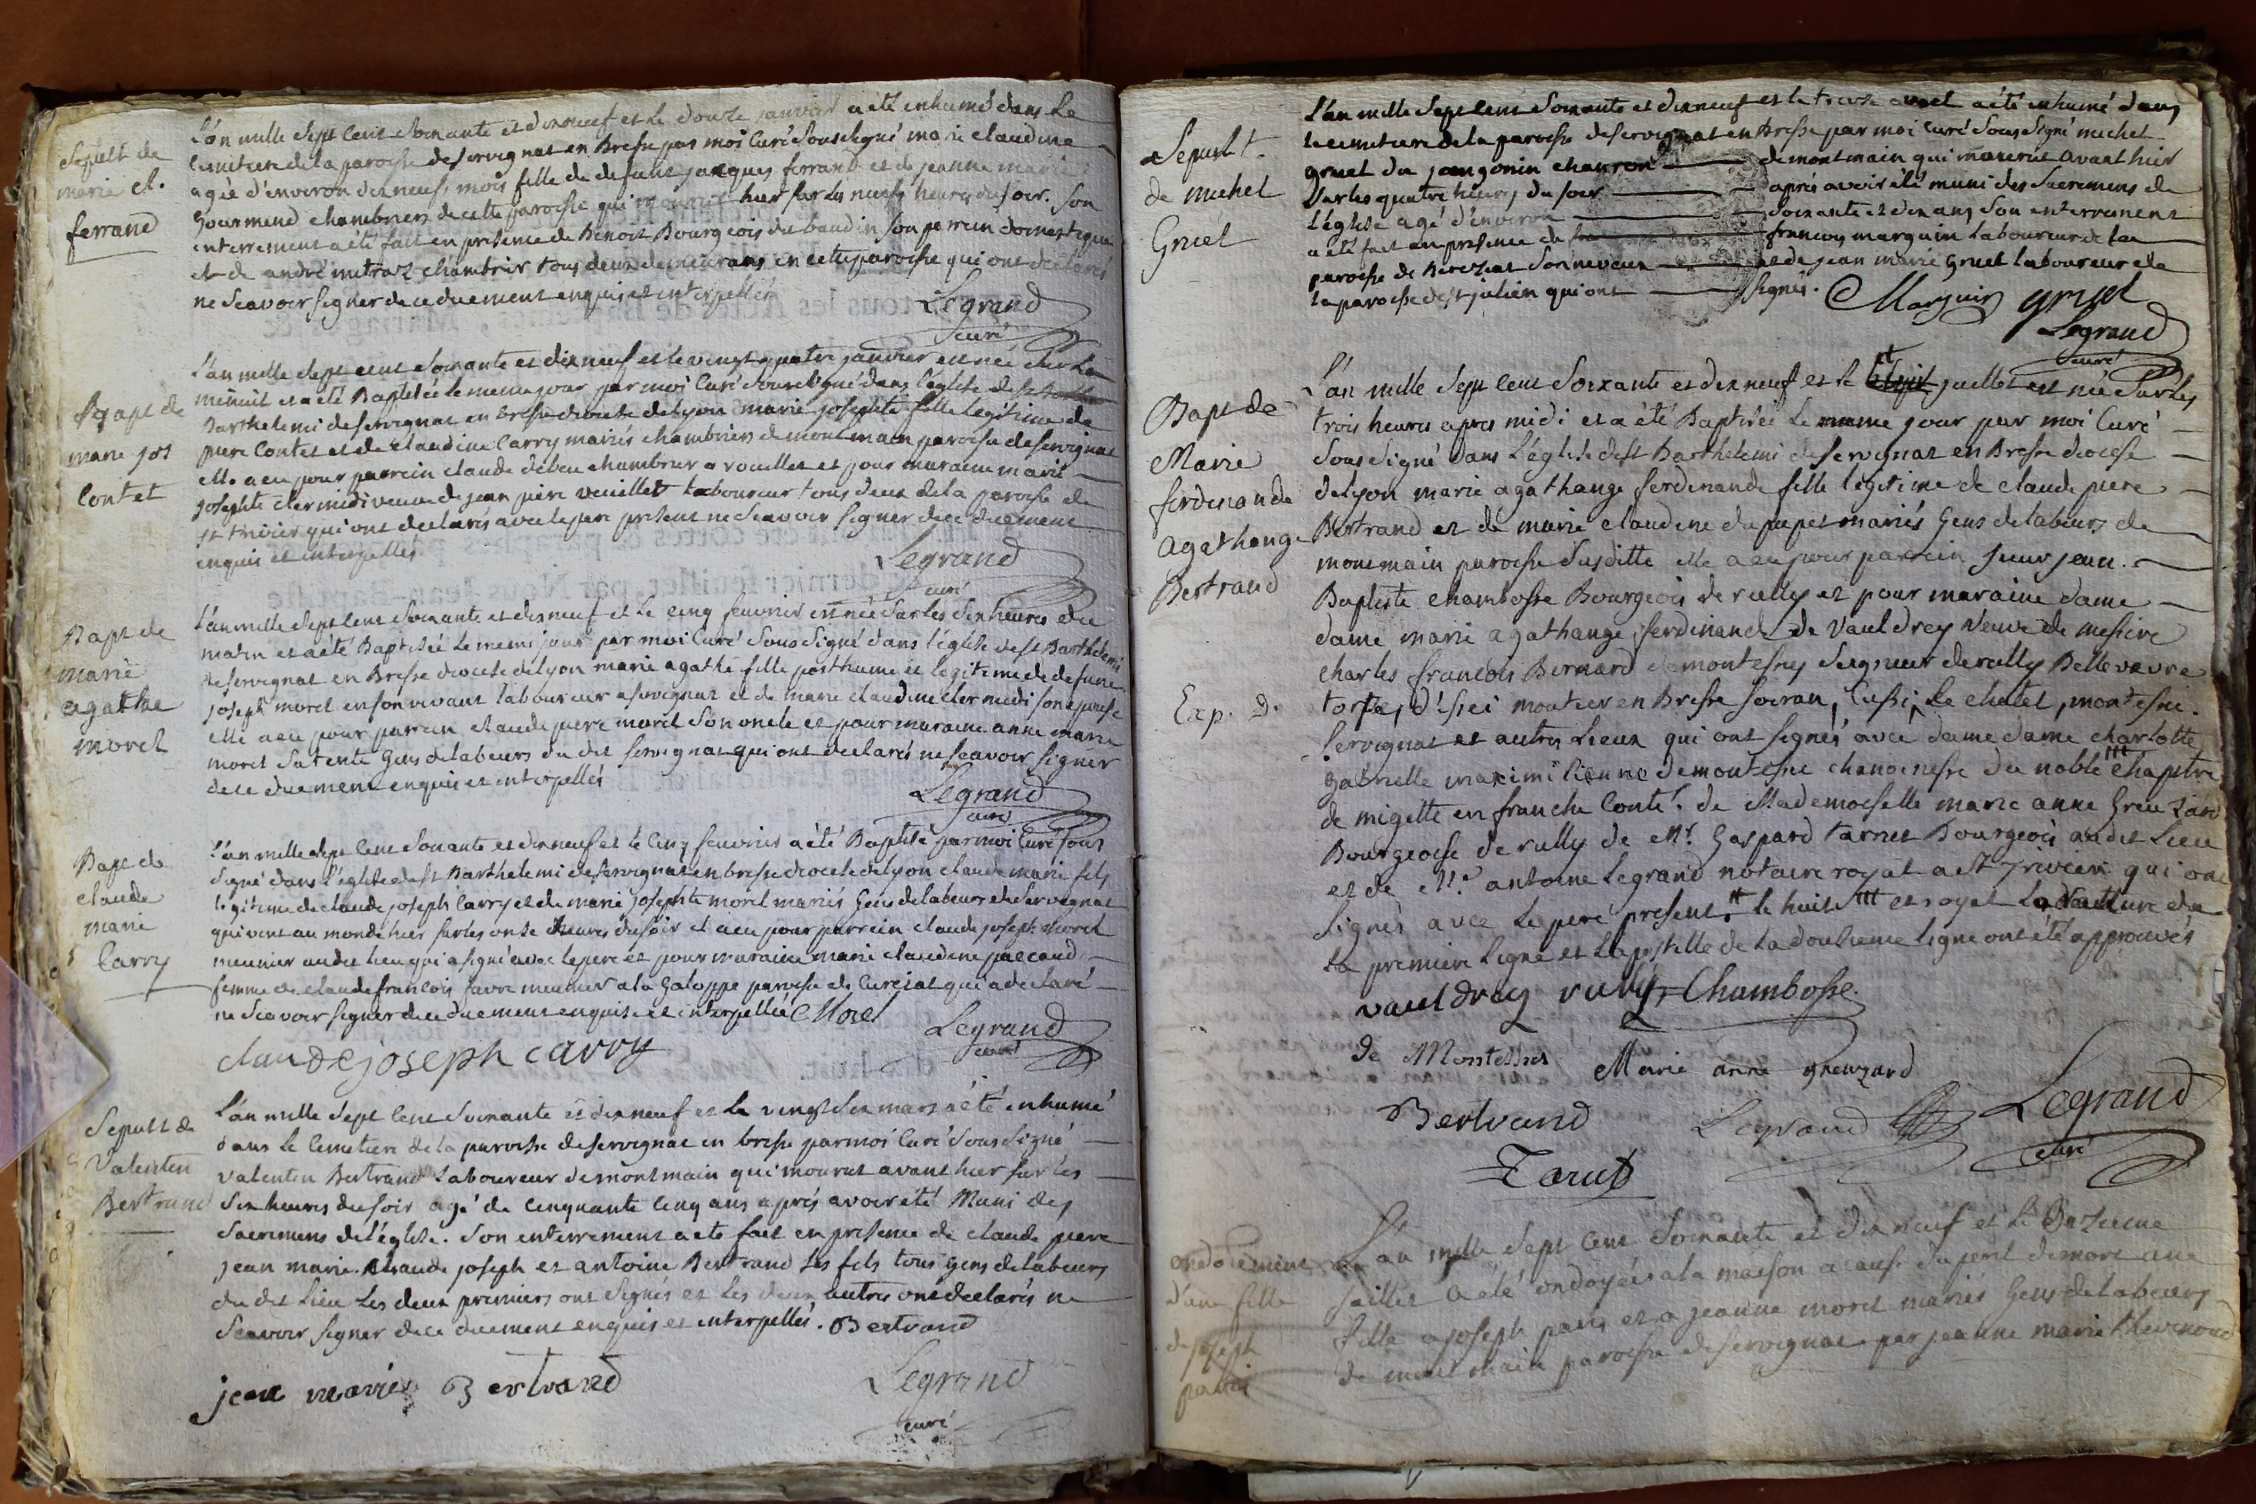 Sepult de
marie cl.
ferrand
L'an mille sept cent soixante et dixneuf et le douze janvier a été inhumé dans le
cimitiere de la paroisse de servignat en Bresse par moi Curé sous signé marie claudine
agée d'environ dixneuf mois fille de defunt jacques ferrand et de jeanne marie
Gourmend chambriers de cette paroisse qui mourut hier sur les neufs heures du soir. Son
enterrement a été fait en presence de Benoit Bourgeois du baudin son parrein domestique
et de andré mitraz chambrier tous deux demeurans en cette paroisse qui ont déclarés
ne sçavoir signer de ce duement enquis et interpellés
Legrand
curé
Bapt de
marie jos
Contet
L'an mille sept cent soixante et dixneuf et le vingt quatre janvier est née sur la
minuit et a été Baptisée le meme jour par moi Curé sous signé dans l'église de st
Barthelemi de servignat en Bresse diocese de Lyon marie josephte fille légitime de
piere Contet et de claudine Carry mariés chambriers de montmain paroisse de servignat
elle a eu pour parrein claude débeu chambrier a vouilles et pour maraine marie
josephte clermidi veuve de jean piere veuillet laboureur tous deux de la paroisse de
st trivier qui ont declarés avec le pere present ne sçavoir signer de ce duement
enquis et interpellés
Legrand
curé
Bapt de
marie
agathe
morel
L'an mille sept cent soixante et dixneuf et le cinq fevrier est née sur les six heures du
matin et a été Baptisée le meme jour par moi Curé sous signé dans l'église de st Barthelemi
de servignat en Bresse diocese de Lyon marie agathe fille posthume et légitime de defunt
joseph morel en son vivant laboureur a servignat et de marie claudine clermidi son epouse
elle a eu pour parrein claude piere morel son oncle et pour maraine anne marie
morel sa tente Gens de labeurs du dit servignat qui ont declarés ne sçavoir signer
de ce duement enquis et interpellés
Legrand
curé
Bapt de
claude
marie
Carry
L'an mille sept cent soixante et dixneuf et le cinq fevrier a été Baptisé par moi Curé sous
signé dans l'église de st Barthelemi de servignat en bresse diocese de Lyon claude marie fils
legitime de claude joseph Carry et de marie josephte morel mariés Gens de labeurs de servignat
qui vint au monde hier sur les onze heures du soir et a eu pour parrein claude joseph morel
meunier au dit lieu qui a signé avec le pere et pour maraine marie claudine pascaud
femme de claude françois favre meunier a la Galoppe paroisse de Curciat qui a declaré
ne sçavoir signer de ce duement enquise et interpellée Morel
Legrand
curé
claude joseph carry
Sepult de
Valentin
Bertrand
L'an mille sept cent soixante et dixneuf et le vingt six mars a été inhumé
dans le Cimetiere de la paroisse de servignat en bresse par moi Curé sous signé
valentin Bertrand Laboureur de montmain qui mourut avant hier sur les
six heures du soir agé de cinquante cinq ans après avoir été Muni des
sacremens de l'église. Son enterrement a été fait en presence de claude piere
jean marie, claude joseph et antoine Bertrand ses fils tous gens de labeurs
du dit lieu les deux premiers ont signés et les deux autres ont declarés ne
sçavoir signer de ce duement enquis et interpellés. Bertrand
jean marie Bertrand
Legrand
curé
Sepult.
de michel
Gruel
L'an mille sept cent soixante et dixneuf et le treize avril a été inhumé dans
le cimetiere de la paroisse de servignat en Bresse par moi Curé sous signé michel
gruel du jangonin chauron de montmain qui mourut avant hier
sur les quatre heures du soir après avoir été muni des sacremens de
l'église agé d'environ soixante et dix ans son enterrement
a été fait en presence de françois marguin laboureur de la
paroisse de Bereziat son neveux et de jean marie Gruel laboureur de
la paroisse de st julien qui ont signés.
Marguin gruel
Legrand
curé
Bapt de
Marie
ferdinande
Agathange
Bertrand
L'an mille sept cent soixante et dixneuf et le juillet est née sur les
trois heures apres midi et a été Baptisée le meme jour par moi Curé
sous signé dans l'église de st Barthelemi de servignat en Bresse diocese
de Lyon marie agathange ferdinande fille légitime de claude piere
Bertrand et de marie claudine dupupet mariés Gens de labeurs de
montmain paroisse susditte elle a eu pour parrein sieur jean
Baptiste chambosse Bourgeois de rully et pour maraine dame
dame marie agathange ferdinande de Vauldrey veuve de messire
charles francois Bernard de montessus seigneur de rully Bellevavre
Exp. D.
torpe, d'ssei moutier en Bresse soiran, Cussi, Le chalet, montesne.
servignat et autres Lieux qui ont signés avec dame dame charlotte
gabrielle maximilienne de montessu chanoinesse du noble chapitre
de migette en franche Conté. de Mademoiselle marie anne Greuzard
Bourgeoise de rully de Mr. Gaspard tarnet Bourgeois au dit Lieu
et de Me. antoine Legrand notaire royal a St Trivier qui ont
signés avec le pere present. le huit et royal La rature de
la premiere Ligne et l'apostille de la douzieme ligne ont été approuvés
vauldrey rully Chambosse
de Montessus Marie anne greuzard
Bertrand Legrand Legrand
curé
Tarut
ondoiement
d'une fille
de joseph
paris
L'an mille sept cent soixante et dixneuf et le onzieme
juillet a été ondoyée a la maison a cause du peril de mort une
fille a joseph paris et a jeanne morel mariés Gens de labeurs
de montmain paroisse de servignat par jeanne marie thevenoud